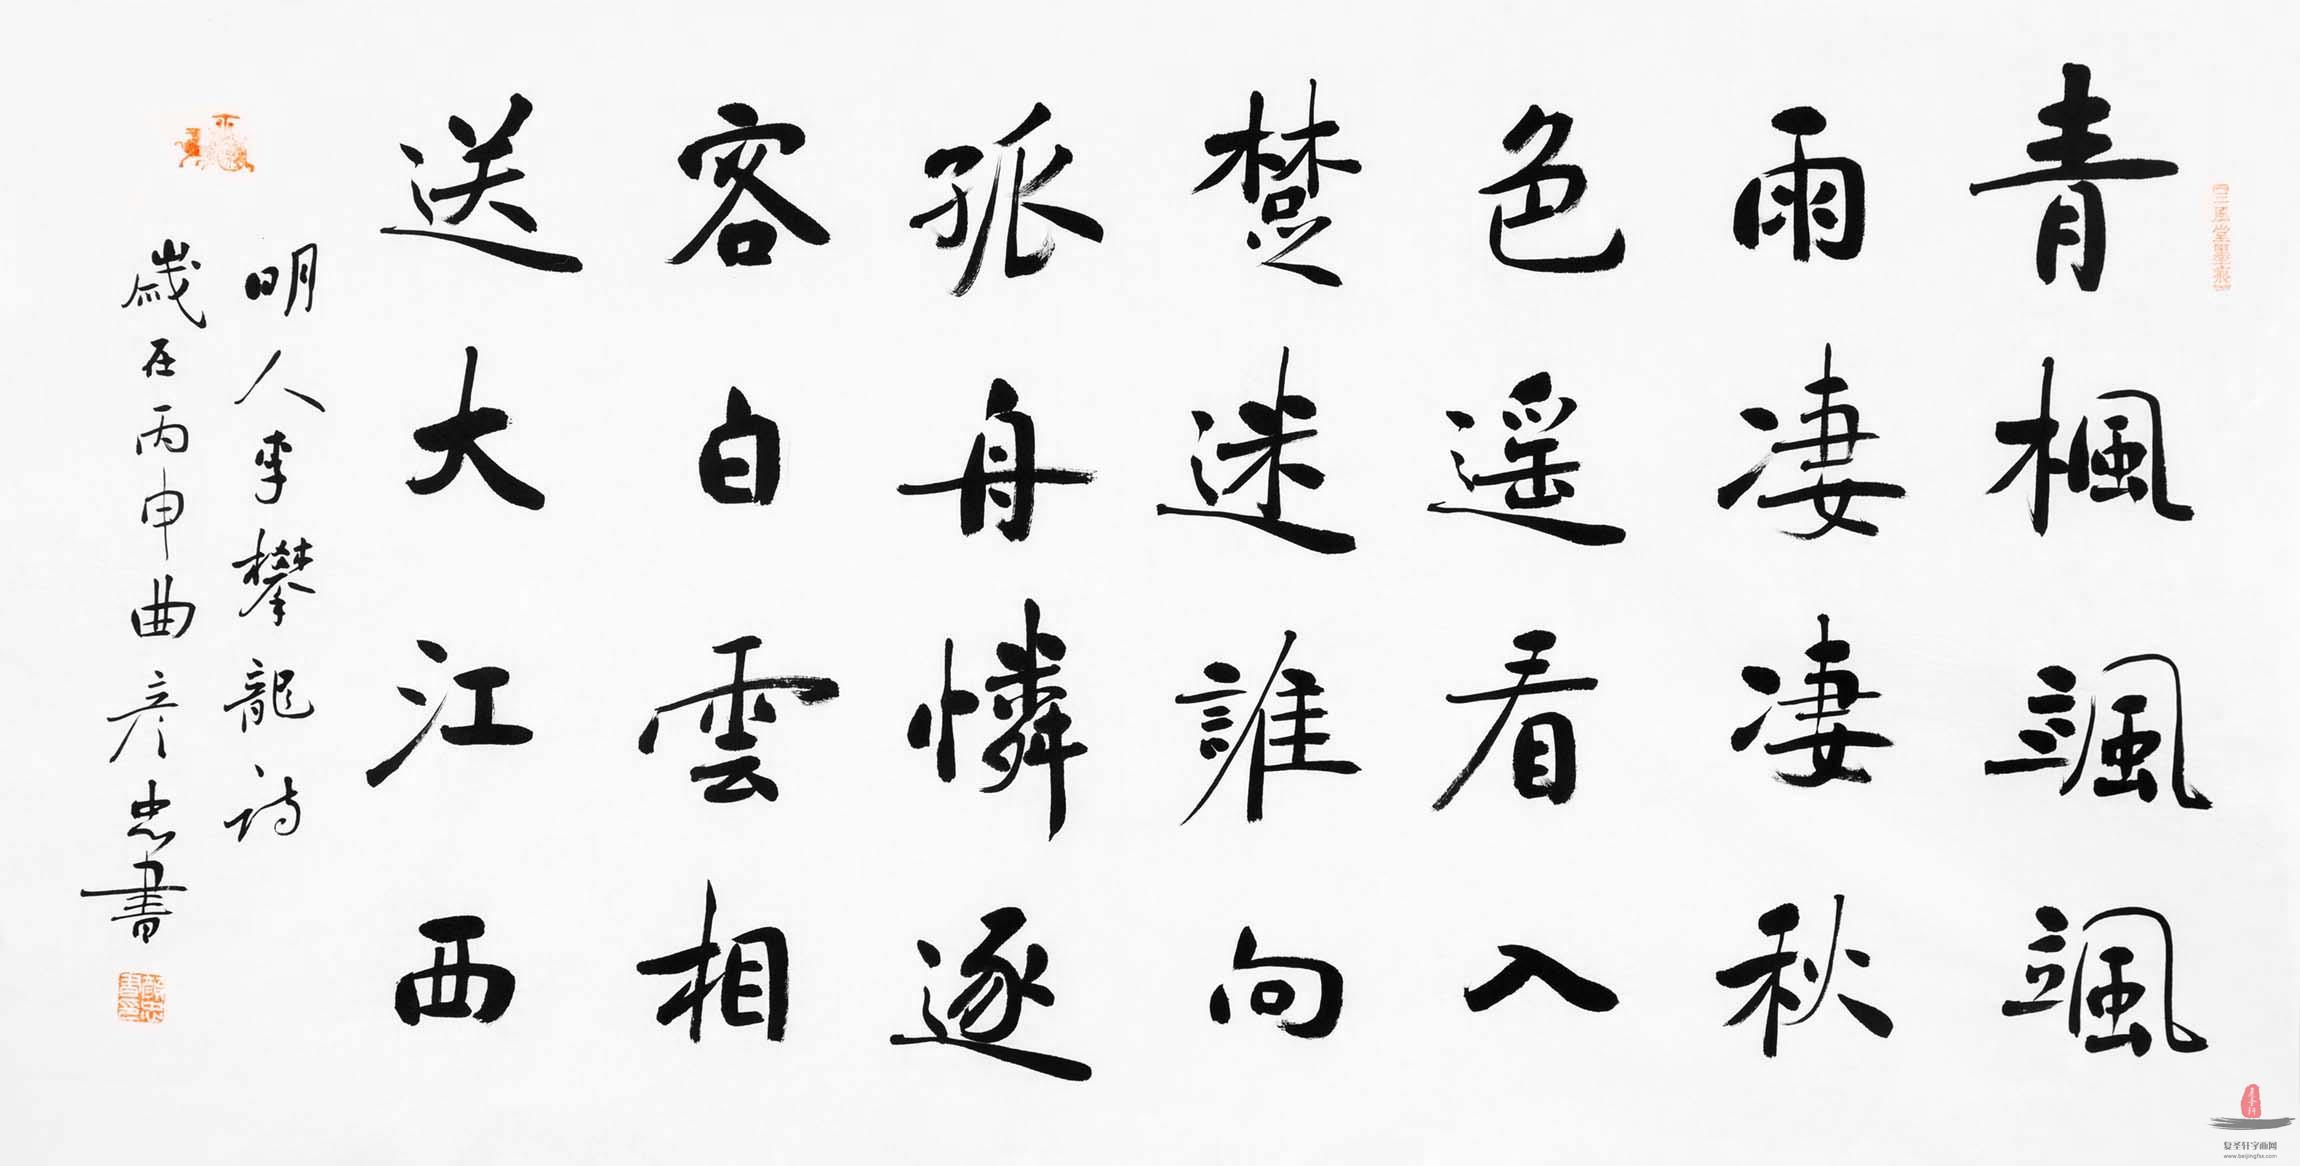 青楓颯颯
雨凄凄秋
色遥看入
楚迷誰向
孤舟憐逐
客白雲相
送大江西
明人李攀龍詩
歲在丙申曲彦忠書
复圣轩字画网
www.beijingfsx.com